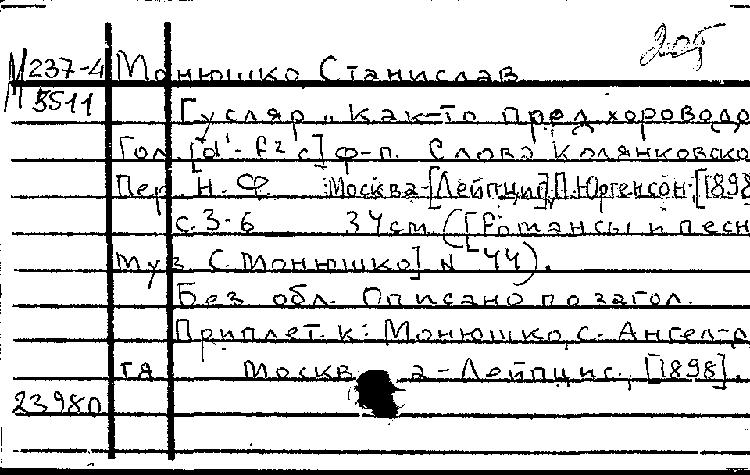 205
М 237-4 Монюшко, Станислав
5511 Гусляр „Как-то пред хороводо
Гол. [d'-f2 c] ф-п. Слова Колянковско
Пер. Н. Ф Москва-[Лейпциг], П. Юргенсон, [1898
с. 3-6 34 см. ([Романсы и песн
муз. С. Монюшко] N 44).
Без обл. Описано по загол.
Приплет. к: Монюшко, С. Ангел-д
тя Москв а-Лейпциг, [1898].
2398о